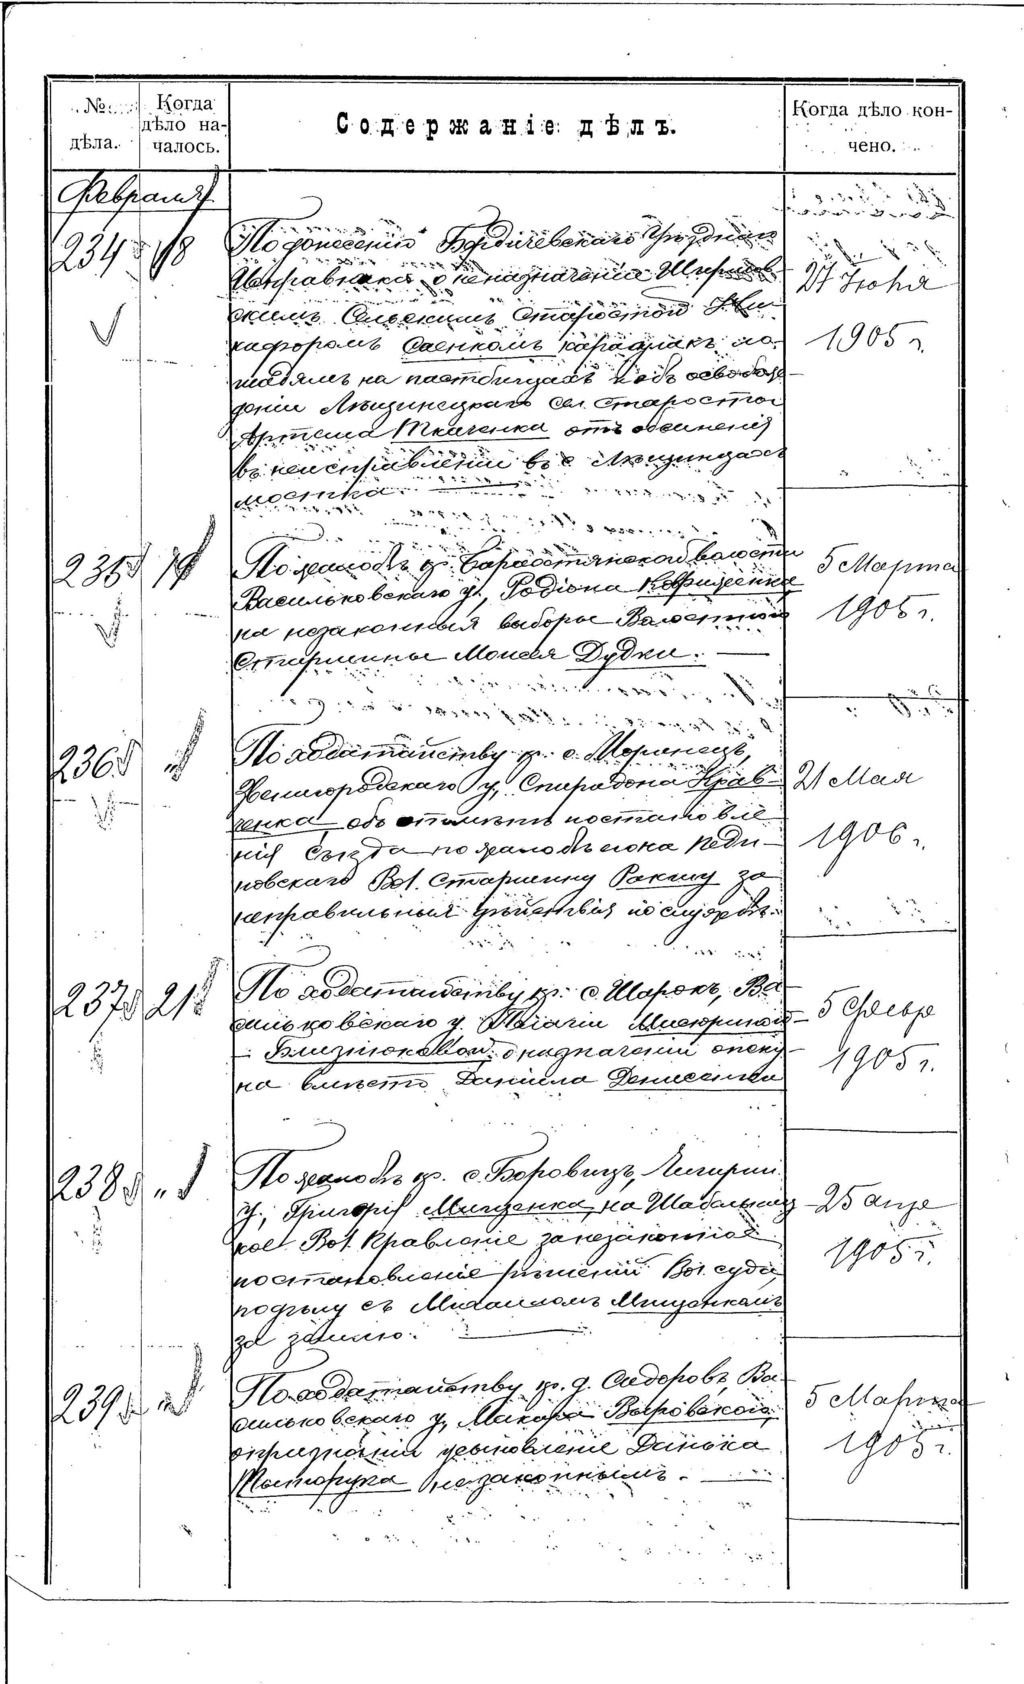 № дѣла.
Когда дѣло на-
чалось.
Содержаніе дѣлъ.
Когда дѣло кон-
чено.
Февраля
234 18
По донесенію Бердичевскаго Уѣзднаго
Исправника о неназначеніи
скимъ Сельскимъ Старостой Ни-
кифоромъ Саенкомъ ло-
шадямъ на пастбищахъ и объ освобож-
деніи Сел. Старосты
Артема Ткаченка отъ
въ неисправленіи въ с.
мостика.
27 Іюня
1905 г.
235 19
По жалобѣ кр. волости
Васильковскаго у., Родіона
на незаконныя выборы Волостного
Старшины Моисея Дудки.
5 Марта
1905 г.
236 "
По ходатайству кр. с. Моринецъ,
Звенигородскаго у., Спиридона Крав-
ченка объ отмѣнѣ постановле-
нія Съѣзда по жалобѣ его на
новскаго Вол. Старшину за
неправильныя дѣйствія по службѣ.
21 Мая
1906 г.
237 21
По ходатайству кр. с. Шарокъ, Ва-
сильковскаго у.
Близнюковой о назначеніи опеку-
на вмѣсто Даніила Денисенка
5 Февр
1905 г.
238 "
По жалобѣ кр. с. Боровицъ, Чигирин.
у., Григорія Мищенка, на Шабельниц
кое Вол. Правленіе за незаконное
постановленіе рѣшеній Вол. суда
по дѣлу съ Михаиломъ Мищенкомъ
за землю.
25 апре
1905 г.
239 "
По ходатайству кр. д. Сидоровъ, Ва-
сильковскаго у., Макара
о признаніи усыновленіе Данька
незаконнымъ.
5 Марта
1905 г.